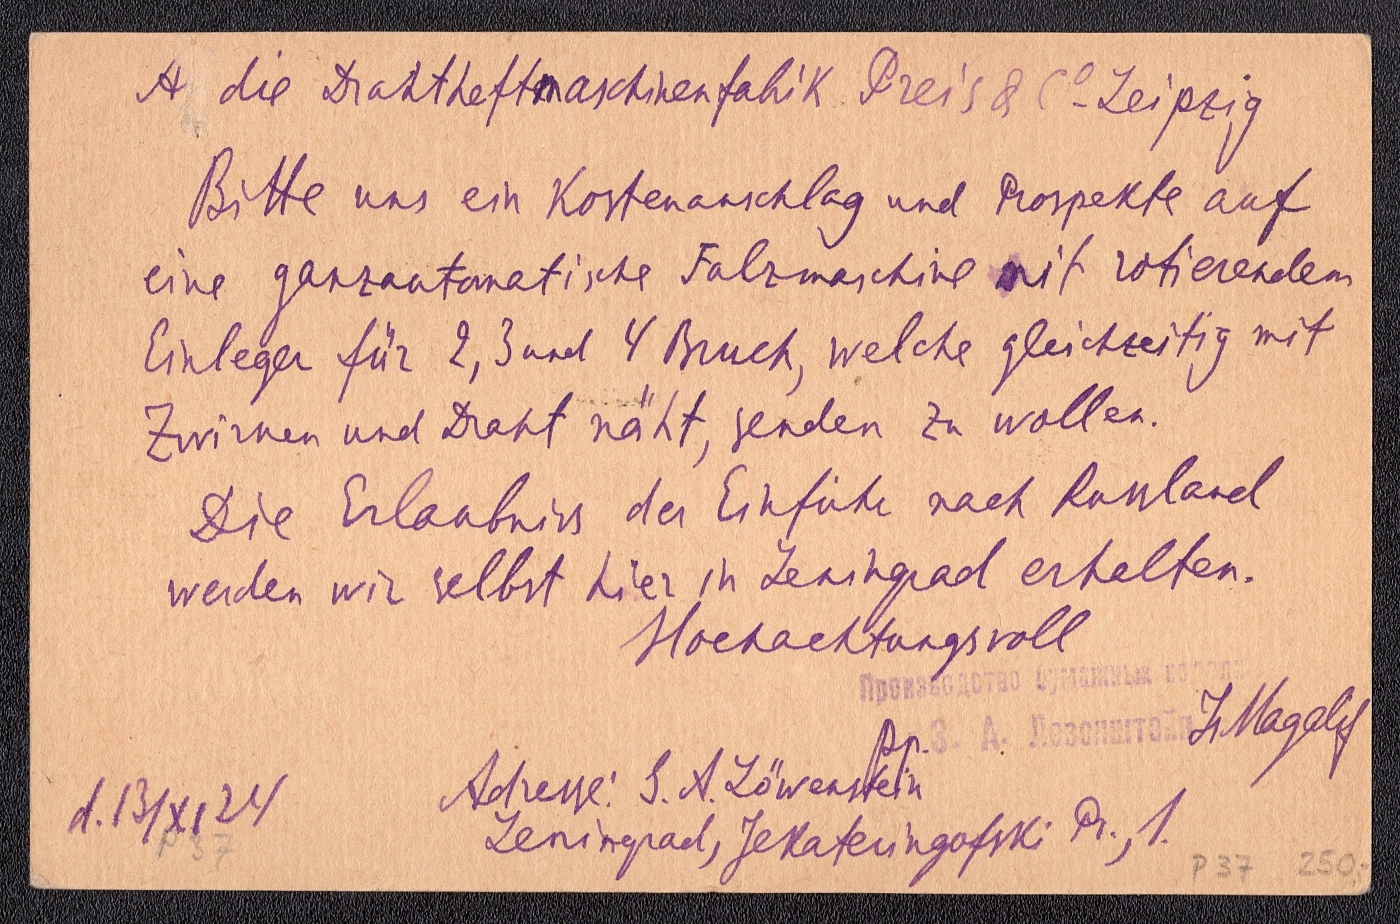 A die Drahtheftmaschinenfabrik Preis & Co - Leipzig
Bitte uns ein Kostenanschlag und Prospekte auf
eine ganzautomatische Falzmaschine mit rotierendem
Einleger für 2, 3 und 4 Bruch, welche gleichzeitig mit
Zwirnen und Draht näht, senden zu wollen.
Die Erlaubniss der Einfuhr nach Russland
werden wir selbst hier in Leningrad erhalten.
Hochachtungsvoll
Производство бумажных
З. А. Левенштейн
pp.
d. 13/XI 24
Adresse: S. A. Löwenstein
Leningrad, Jekateringofski Pr., 1.
P 37
P 37 250.-